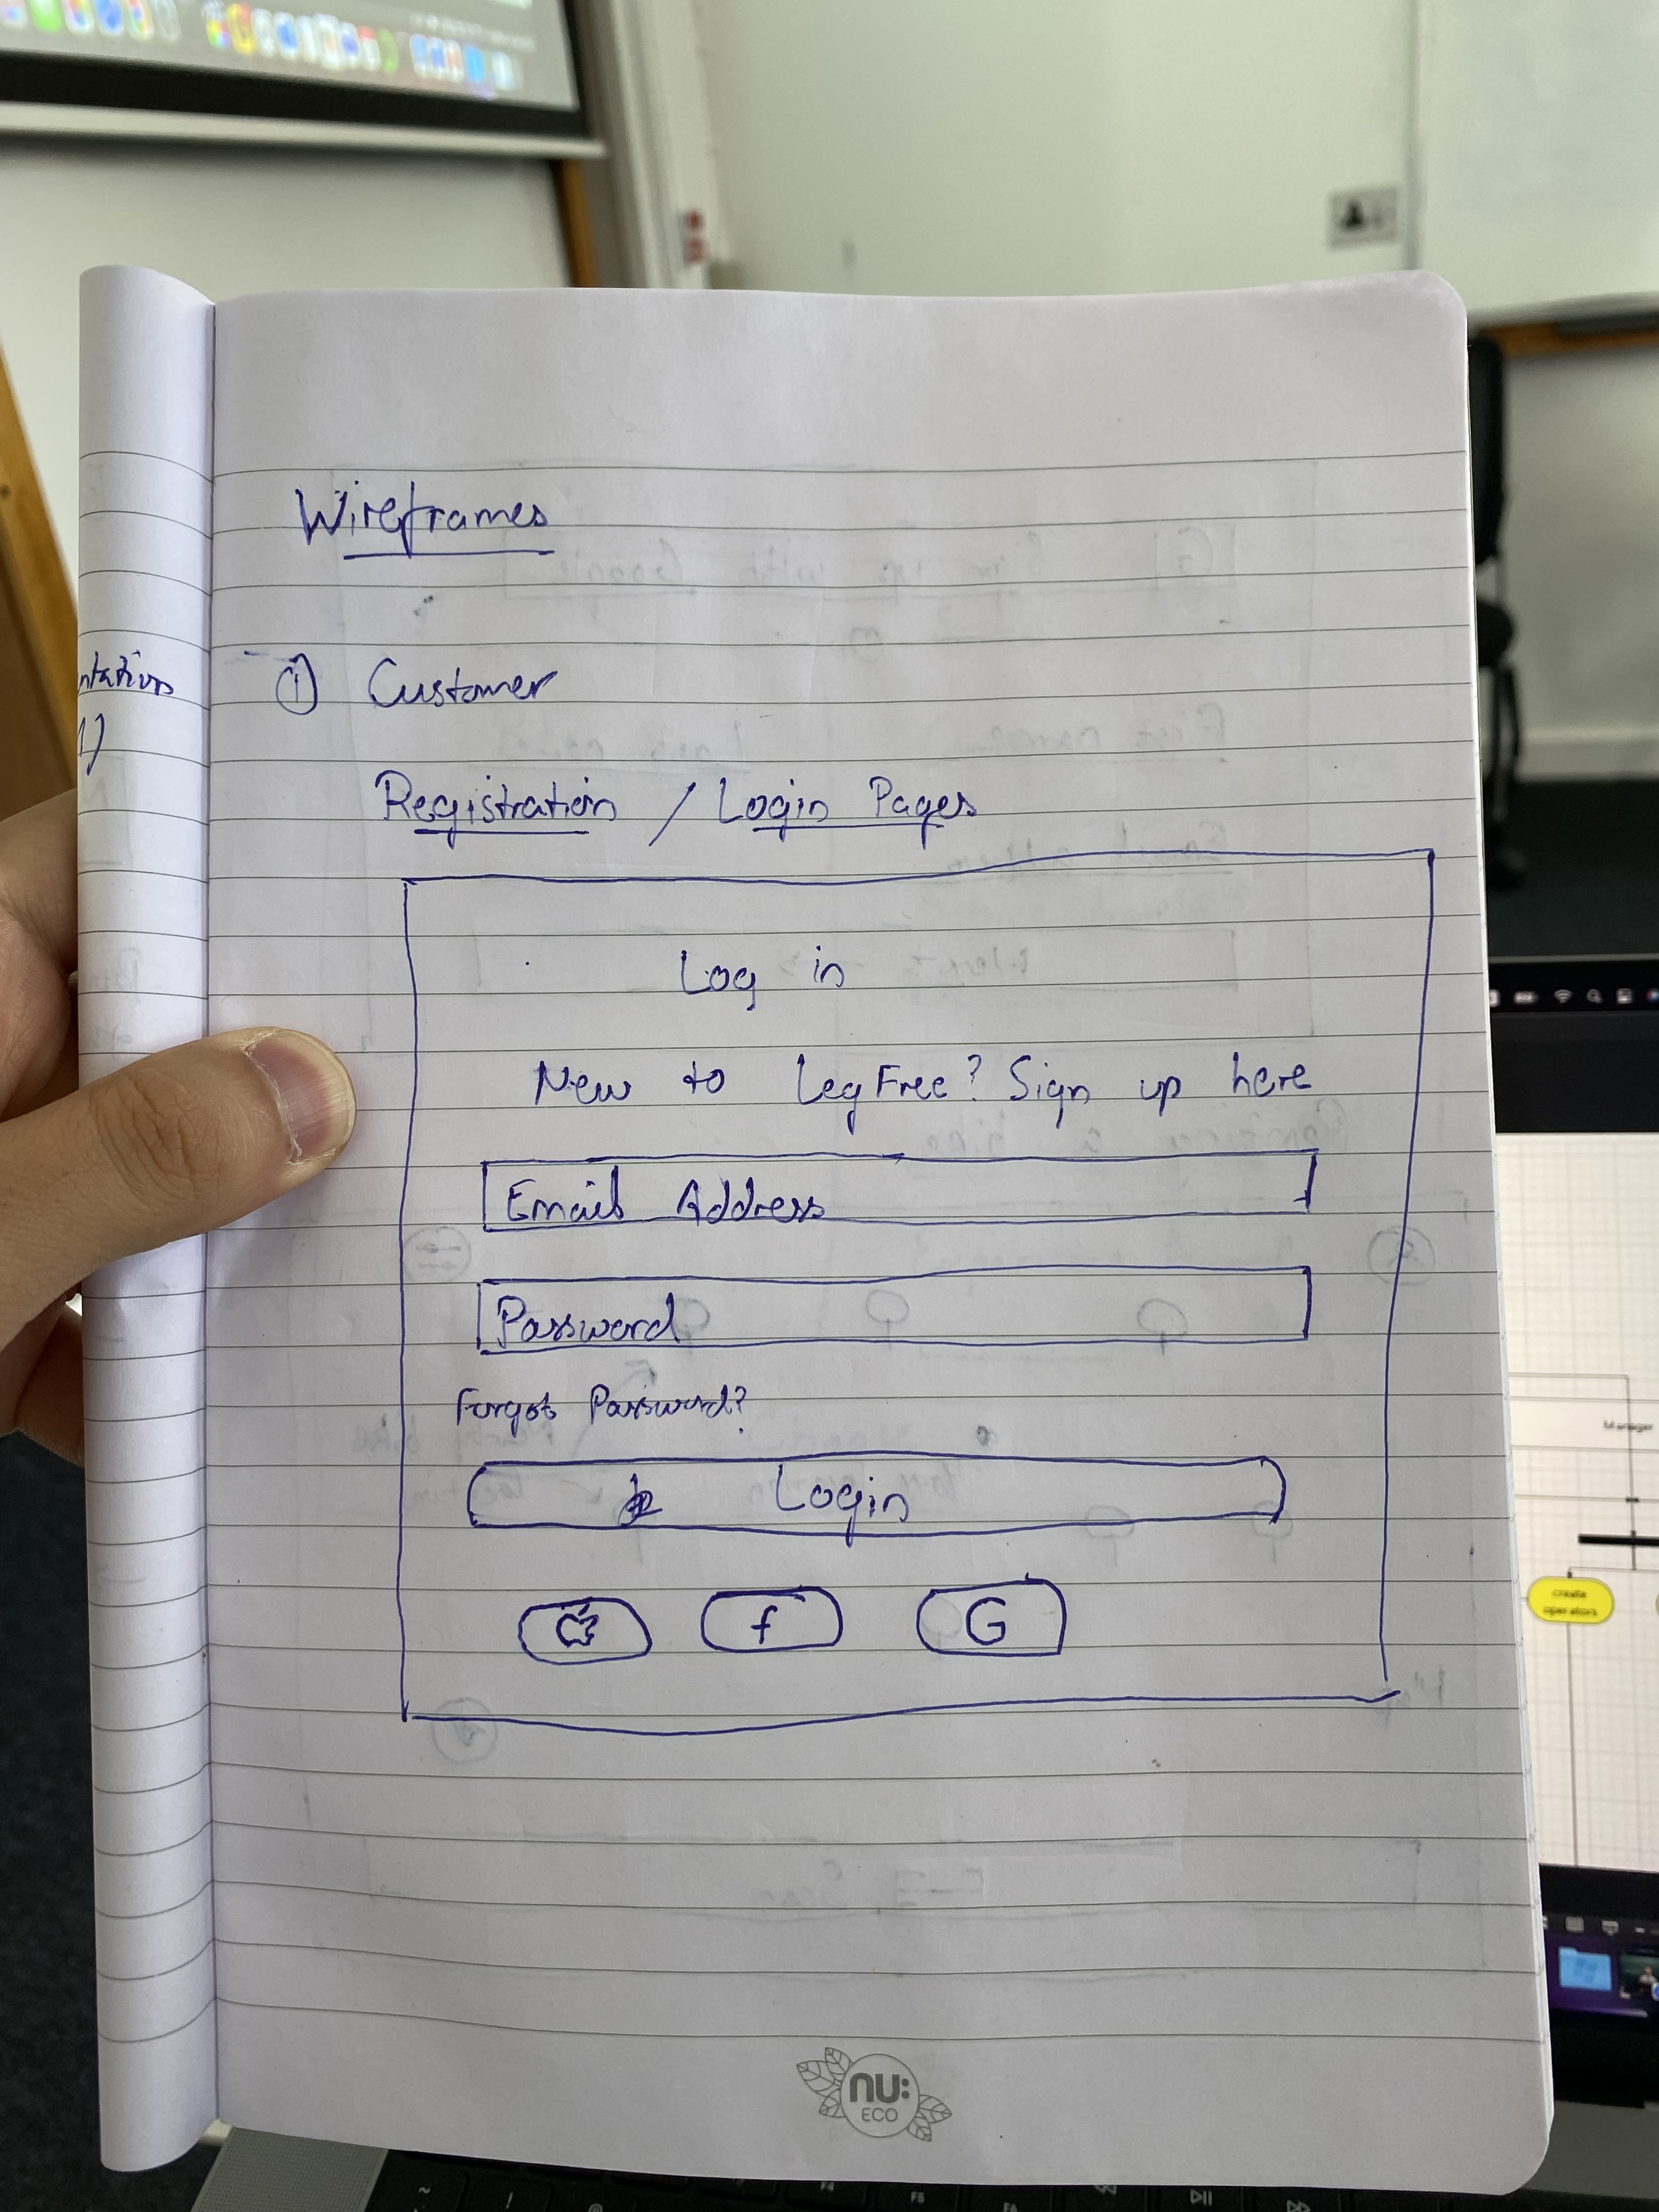 Wireframes
ntation
1)
① Customer
Registration / Login Pages
Log in
New to LegFree? Sign up here
Email Address
Password
Forgot Password?
Login
f
G
Manager
create
operators
nu:
ECO